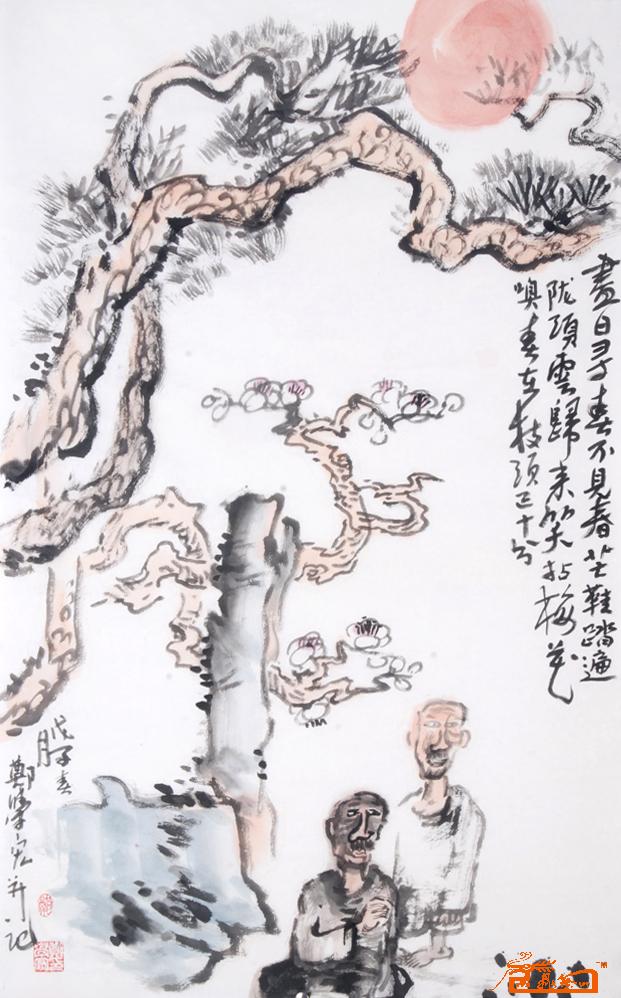 盡日寻春不見春芒鞋踏遍
陇頭雲歸来笑拈梅花
嗅春在枝頭已十分
戊子春
鄭
并记